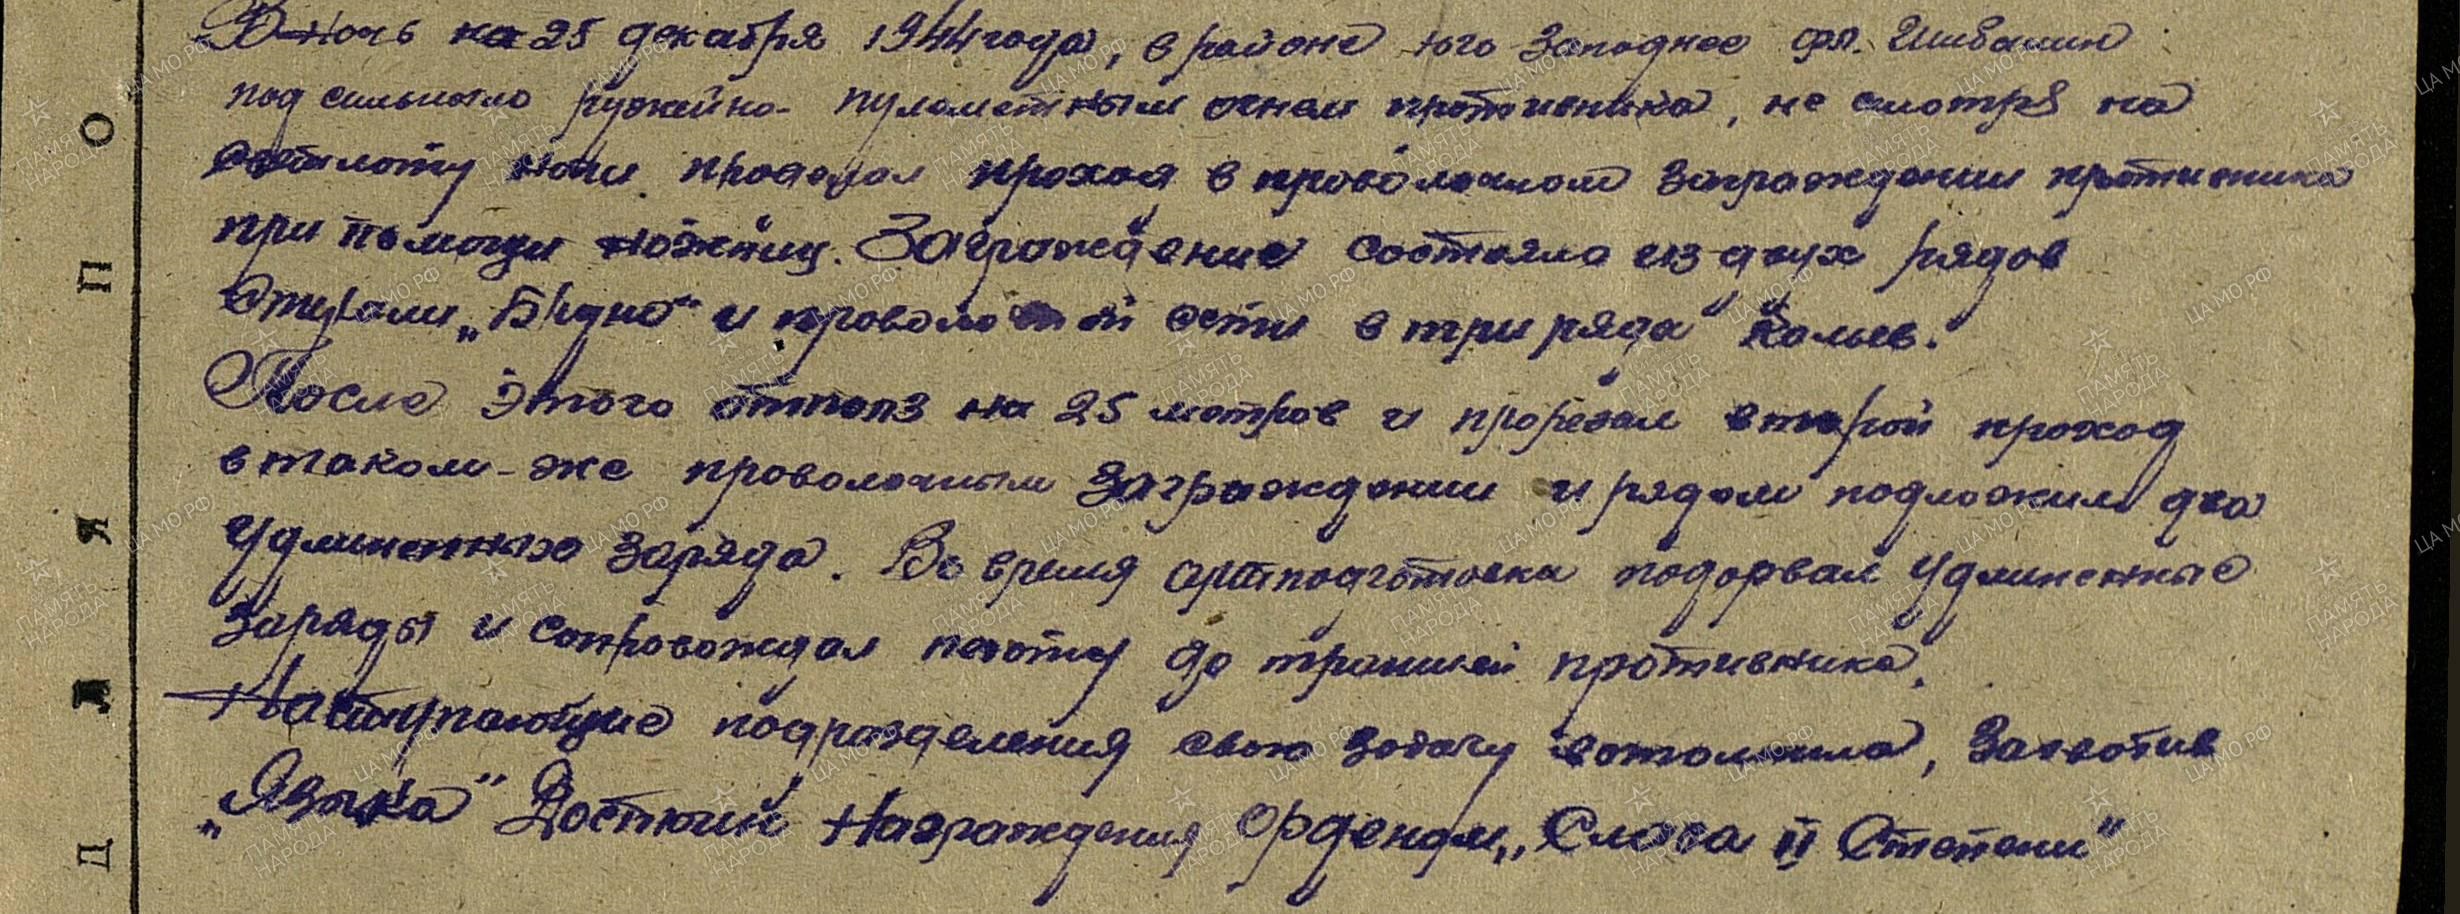 В ночь на 25 декабря 1944 года, в районе юго западнее фл.
под сильным ружейно-пулеметным огнем противника, не смотря на
светлоту ночи проделал проход в проволочном заграждении противника
при помощи ножниц. Заграждение состояло из двух рядов
Спирали „Бруно" и проволочной сети в три ряда кольев.
После этого отполз на 25 метров и прорезал второй проход
в таком-же проволочным заграждении и рядом подложил два
удлиненных заряда. Во время артподготовки подорвал удлиненные
заряды и сопровождал пехоту до траншей противника.
Наступающие подразделения свою задачу выполнила, захватив
„Языка" Достоин награждения орденом „Слава II Степени"
Д Л Я П О